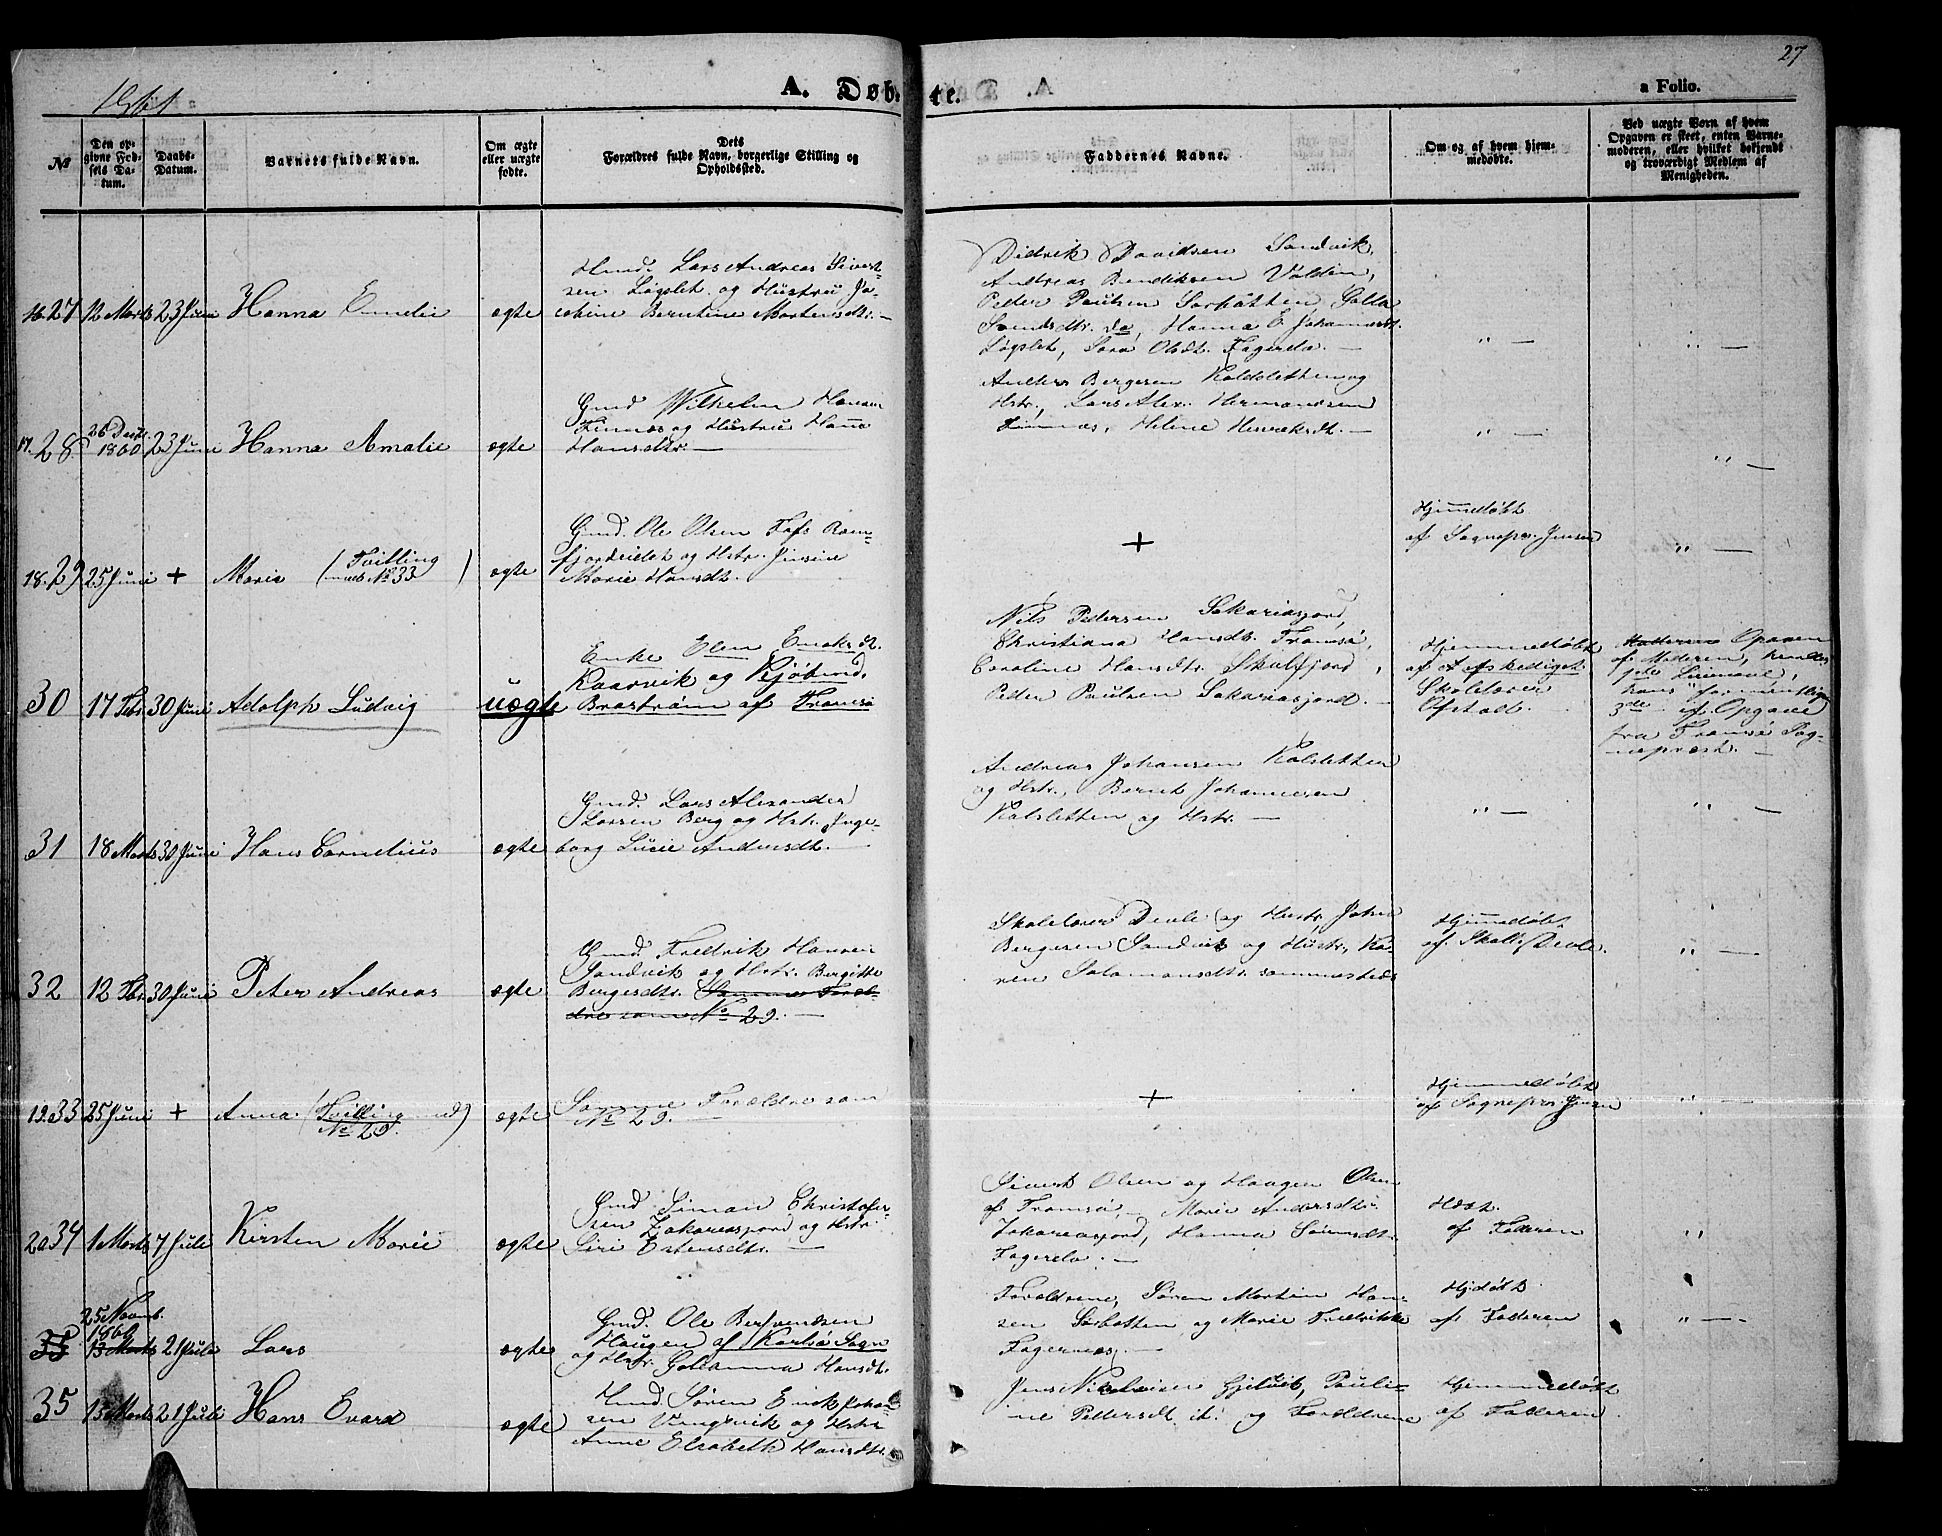 27
1861
A. Døbte.
a Folio.
№
Den opgivne Fødsels Datum.
Daabs-Datum.
Barnets fulde Navn.
Om ægte eller uægte fødte.
Dets Forældres fulde Navn, borgerlige Stilling og Opholdssted.
Faddernes Navne.
Om og af hvem hjemmedøbte.
Ved uægte Børn af hvem Opgaven er skeet, enten Barnemoderen, eller hvilket bekjendt og troværdigt Medlem af Menigheden.
16. 27 12 Marts 23 Juni Hanna Emelie ægte
Lars Andreas Sivert-
sen Løgslet og Hustru Ja-
cobine Berntine Mortensdtr. —
Didrik Davidsen Sandvik,
Andreas Bendiksen Valdin,
Peder Paulsen Sørbotten
Svendsdtr. do, Hanna E. Johannesdt.
Løgslet, Sara Olsdt. Fagerela. —
" —
" —
17. 28 26 Decbr. 1860 23 Juni Hanna Amalie ægte
Gmd. Wilhelm Hansen
Finnæs og Hustru Hanna
Hansdtr. —
Anders Bergesen Kaldsletten og
Hstr., Lars Alex. Hermandsen
Finnæs, Helene Henriksdt. —
" —
" —
18. 29 25 Juni + Marie (Tvilling
med № 33) ægte
Gmd. Ole Olsen Ram-
fjordeidet og Hstr. Jensine
Marie Hansdt.
+
Hjemmedøbt
af Sognepr. Jensen
" —
30 17 Febr. 30 Juni Adolph Ludvig uægte
Enke Elen
Kaarvik og
af Tromsø
Nils Pedersen Sakariasjord,
Christiana Hansdt. Tromsø,
Caroline Hansdtr. Skulsfjord,
Peder Paulsen Sakariasjord. —
Hjemmedøbt
af Afskediget
Skolelærer
Opgaven
af Moderen,
hans formentlige
3die
fra Tromsø Sog-
nepræst. —
31 18 Marts 30 Juni Hans Cornelius ægte
Gmd. Lars Alexander
Larsen Berg og Hstr. Inge-
borg Lucie Andersdt. —
Andreas Johansen Kalsletten
og Hstr., Bernt Johannesen
Kalsletten og Hstr. —
" —
" —
32 12 Fbr. 30 Juni Peter Andreas ægte
Gmd. Fredrik Hansen
Sandvik og Hstr. Bergitte
Bergesdtr. Samme Foræl-
dre som № 29. —
Skolelærer Devle og Hustr., Johan
Bergesen Sandvik og Hustr., Ka-
ren Salamonsdtr. sammesteds
Hjemmedøbt
af Skoll. Devle.
" —
19. 33 25 Juni + Anna (Tvilling med
№ 29.) ægte
Samme Forældre som
№ 29. —
+
Hjemmedøbt
af Sognepr. Jensen
" —
20 34 1 Marts 7 Juli Kirsten Marie ægte
Gmd Simon Christofer-
sen Zakariasjord og Hstr.
Siri Estensdtr. —
Sivert Olsen og Haagen Olsen
af Tromsø, Marie Andersdtr.
Zakariasjord, Hanna Sørensdt.
Fagerela. —
Hdøbt.
af Faderen
"
35 25 Novmb. 1860 13 Marts 21 Juli Lars ægte
Gmd. Ole Berventsen
Haugen af Karlsø Sogn
og Hstr. Johanna Hansdt.
Forældrene, Søren Martin Han-
sen Sørbotten og Marie Fredrikke
Fagernæs. —
Hjdøbt
af Faderen
" —
35 13 Marts 21 Juli Hans Evard ægte
Søren Erik Johan-
sen Vengsvik og Hstr
Anne Elisabeth Hansdtr.
Jens Nicolaisen Pauli-
ne Pettersdt. it. og Forældrene
Hjemmedøbt
af Faderen